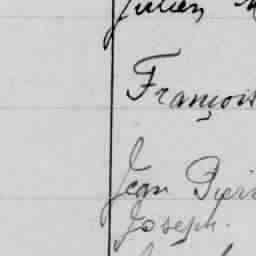 Julien
François
Jean Pier
Joseph.